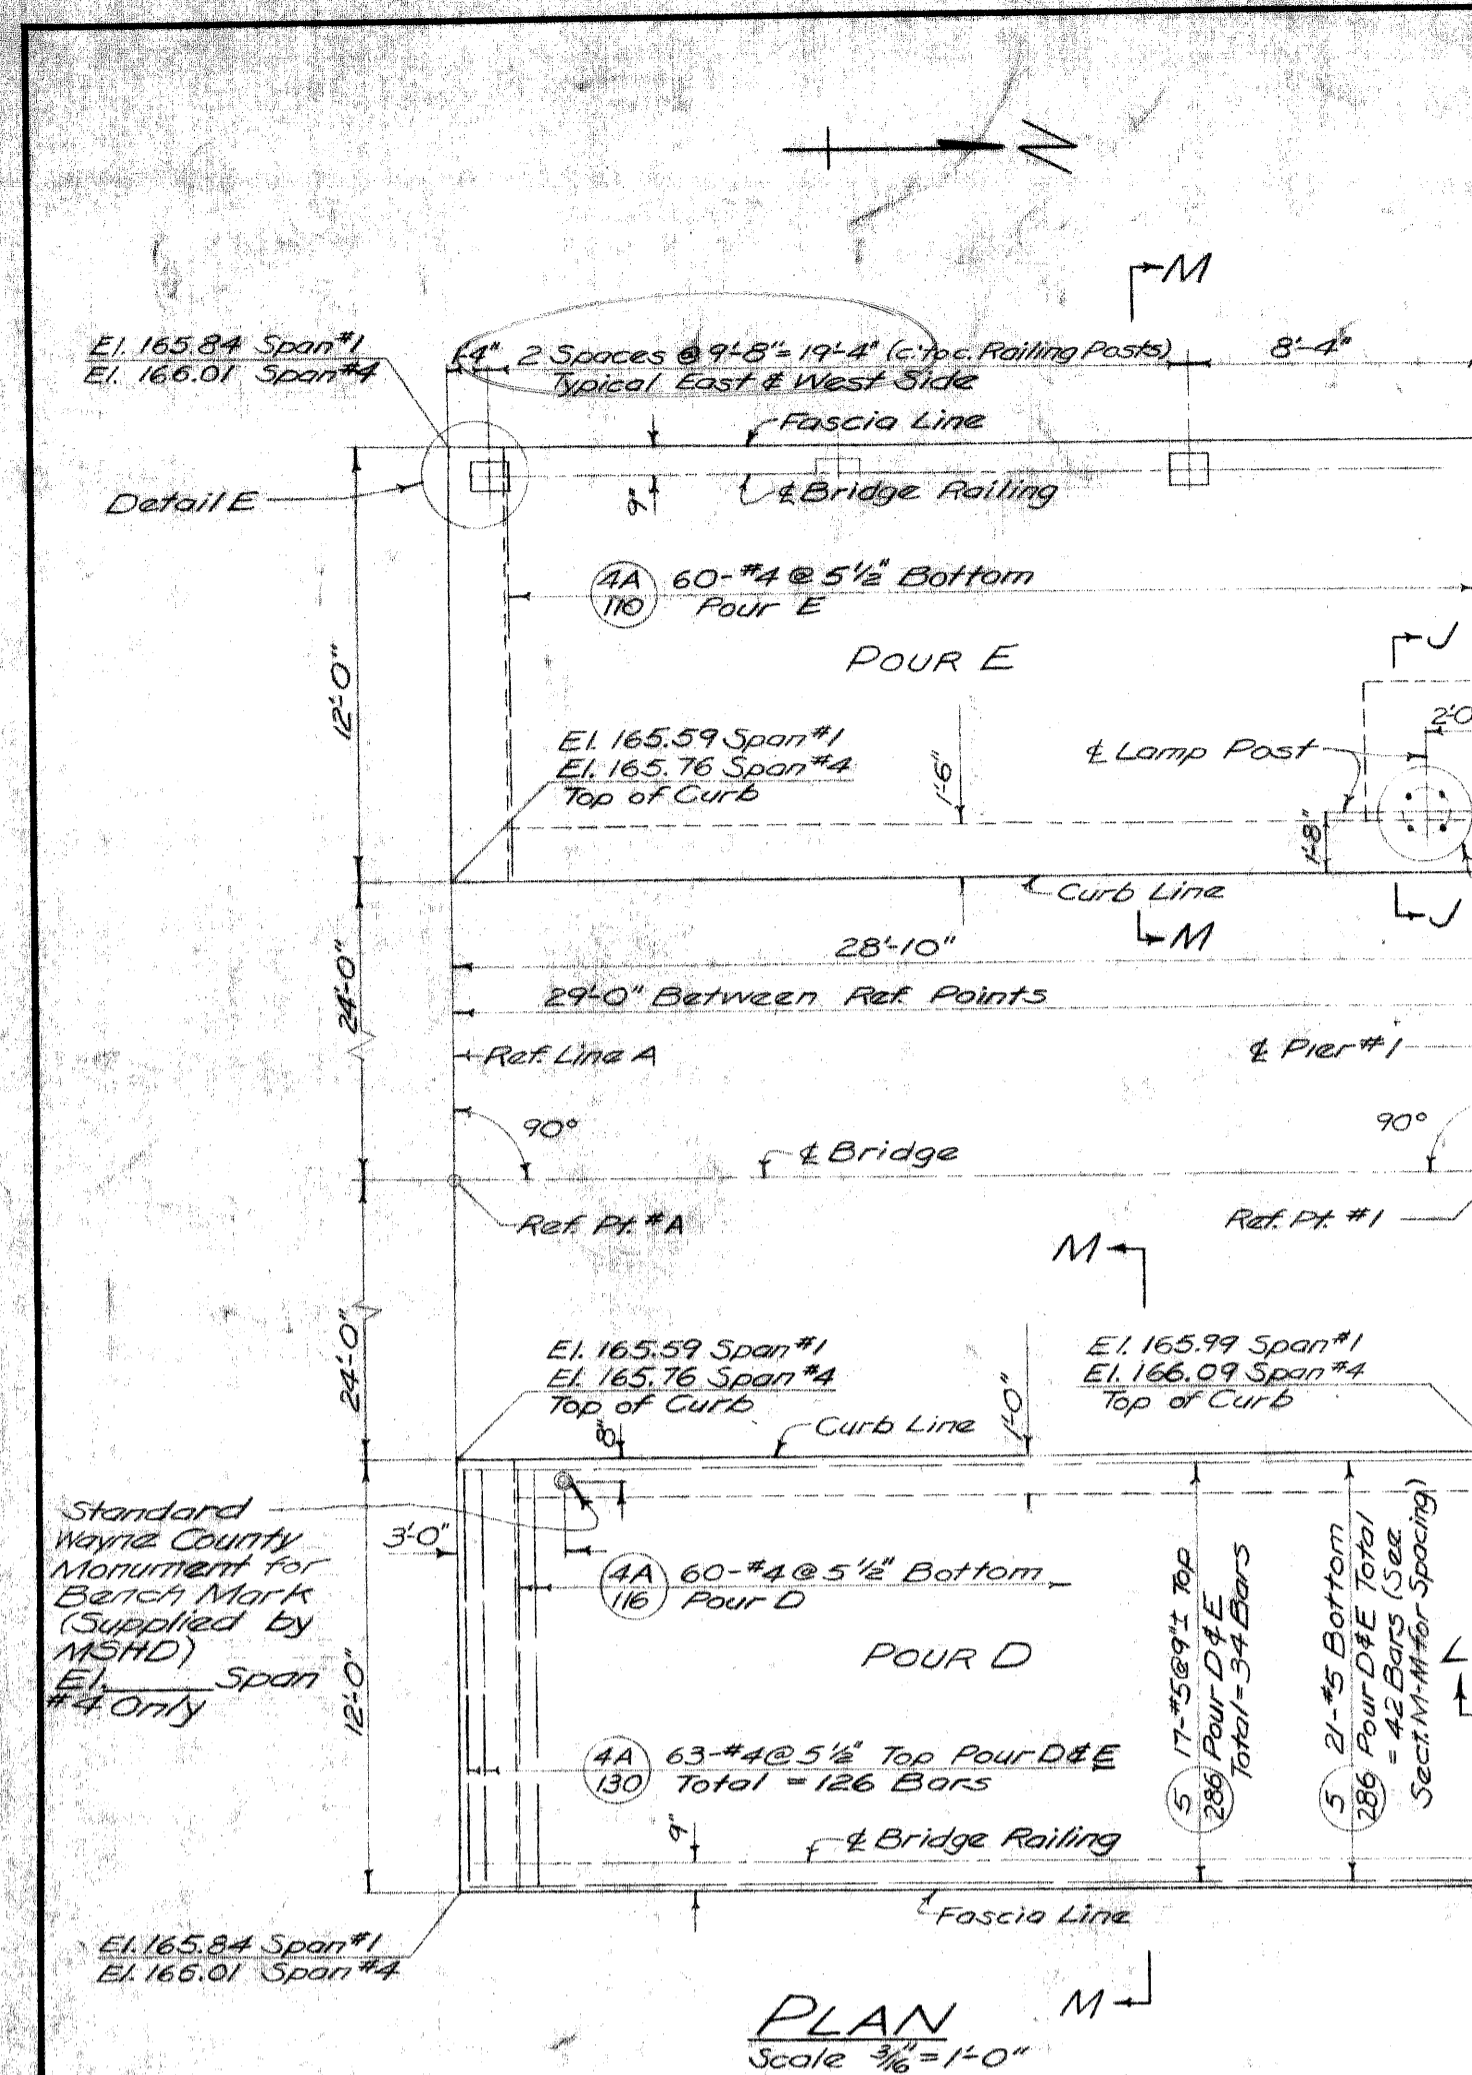 N
M
El. 165.84 Span #1
El. 166.01 Span #4
1'-4"
2 Spaces @ 9'-8" = 19'-4" (c. to c. Railing Posts)
Typical East & West Side
8'-4"
Fascia Line
Detail E
9"
℄ Bridge Railing
4A
110
60-#4 @ 5½" Bottom
Pour E
POUR E
J
12'-0"
2'-0
El. 165.59 Span #1
El. 165.76 Span #4
Top of Curb
1'-6"
℄ Lamp Post
1'-8"
Curb Line
J
M
24'-0"
28'-10"
29'-0" Between Ref. Points
Ref. Line A
℄ Pier #1
90°
90°
℄ Bridge
Ref. Pt. #A
Ref. Pt. #1
M
24'-0"
El. 165.59 Span #1
El. 165.76 Span #4
Top of Curb
8"
Curb Line
1'-0"
El. 165.99 Span #1
El. 166.09 Span #4
Top of Curb
Standard
Wayne County
Monument for
Bench Mark
(Supplied by
MSHD)
El.______ Span
#4 Only
3'-0"
4A
116
60-#4 @ 5½" Bottom
Pour D
POUR D
12'-0"
4A
130
63-#4 @ 5½" Top Pour D & E
Total = 126 Bars
5
286
17-#5 @ 9"± Top
Pour D & E
Total = 34 Bars
5
286
21-#5 Bottom
Pour D & E Total
= 42 Bars (See
Sect. M-M for Spacing)
L
9"
℄ Bridge Railing
Fascia Line
El. 165.84 Span #1
El. 166.01 Span #4
M
PLAN
Scale 3/16" = 1'-0"